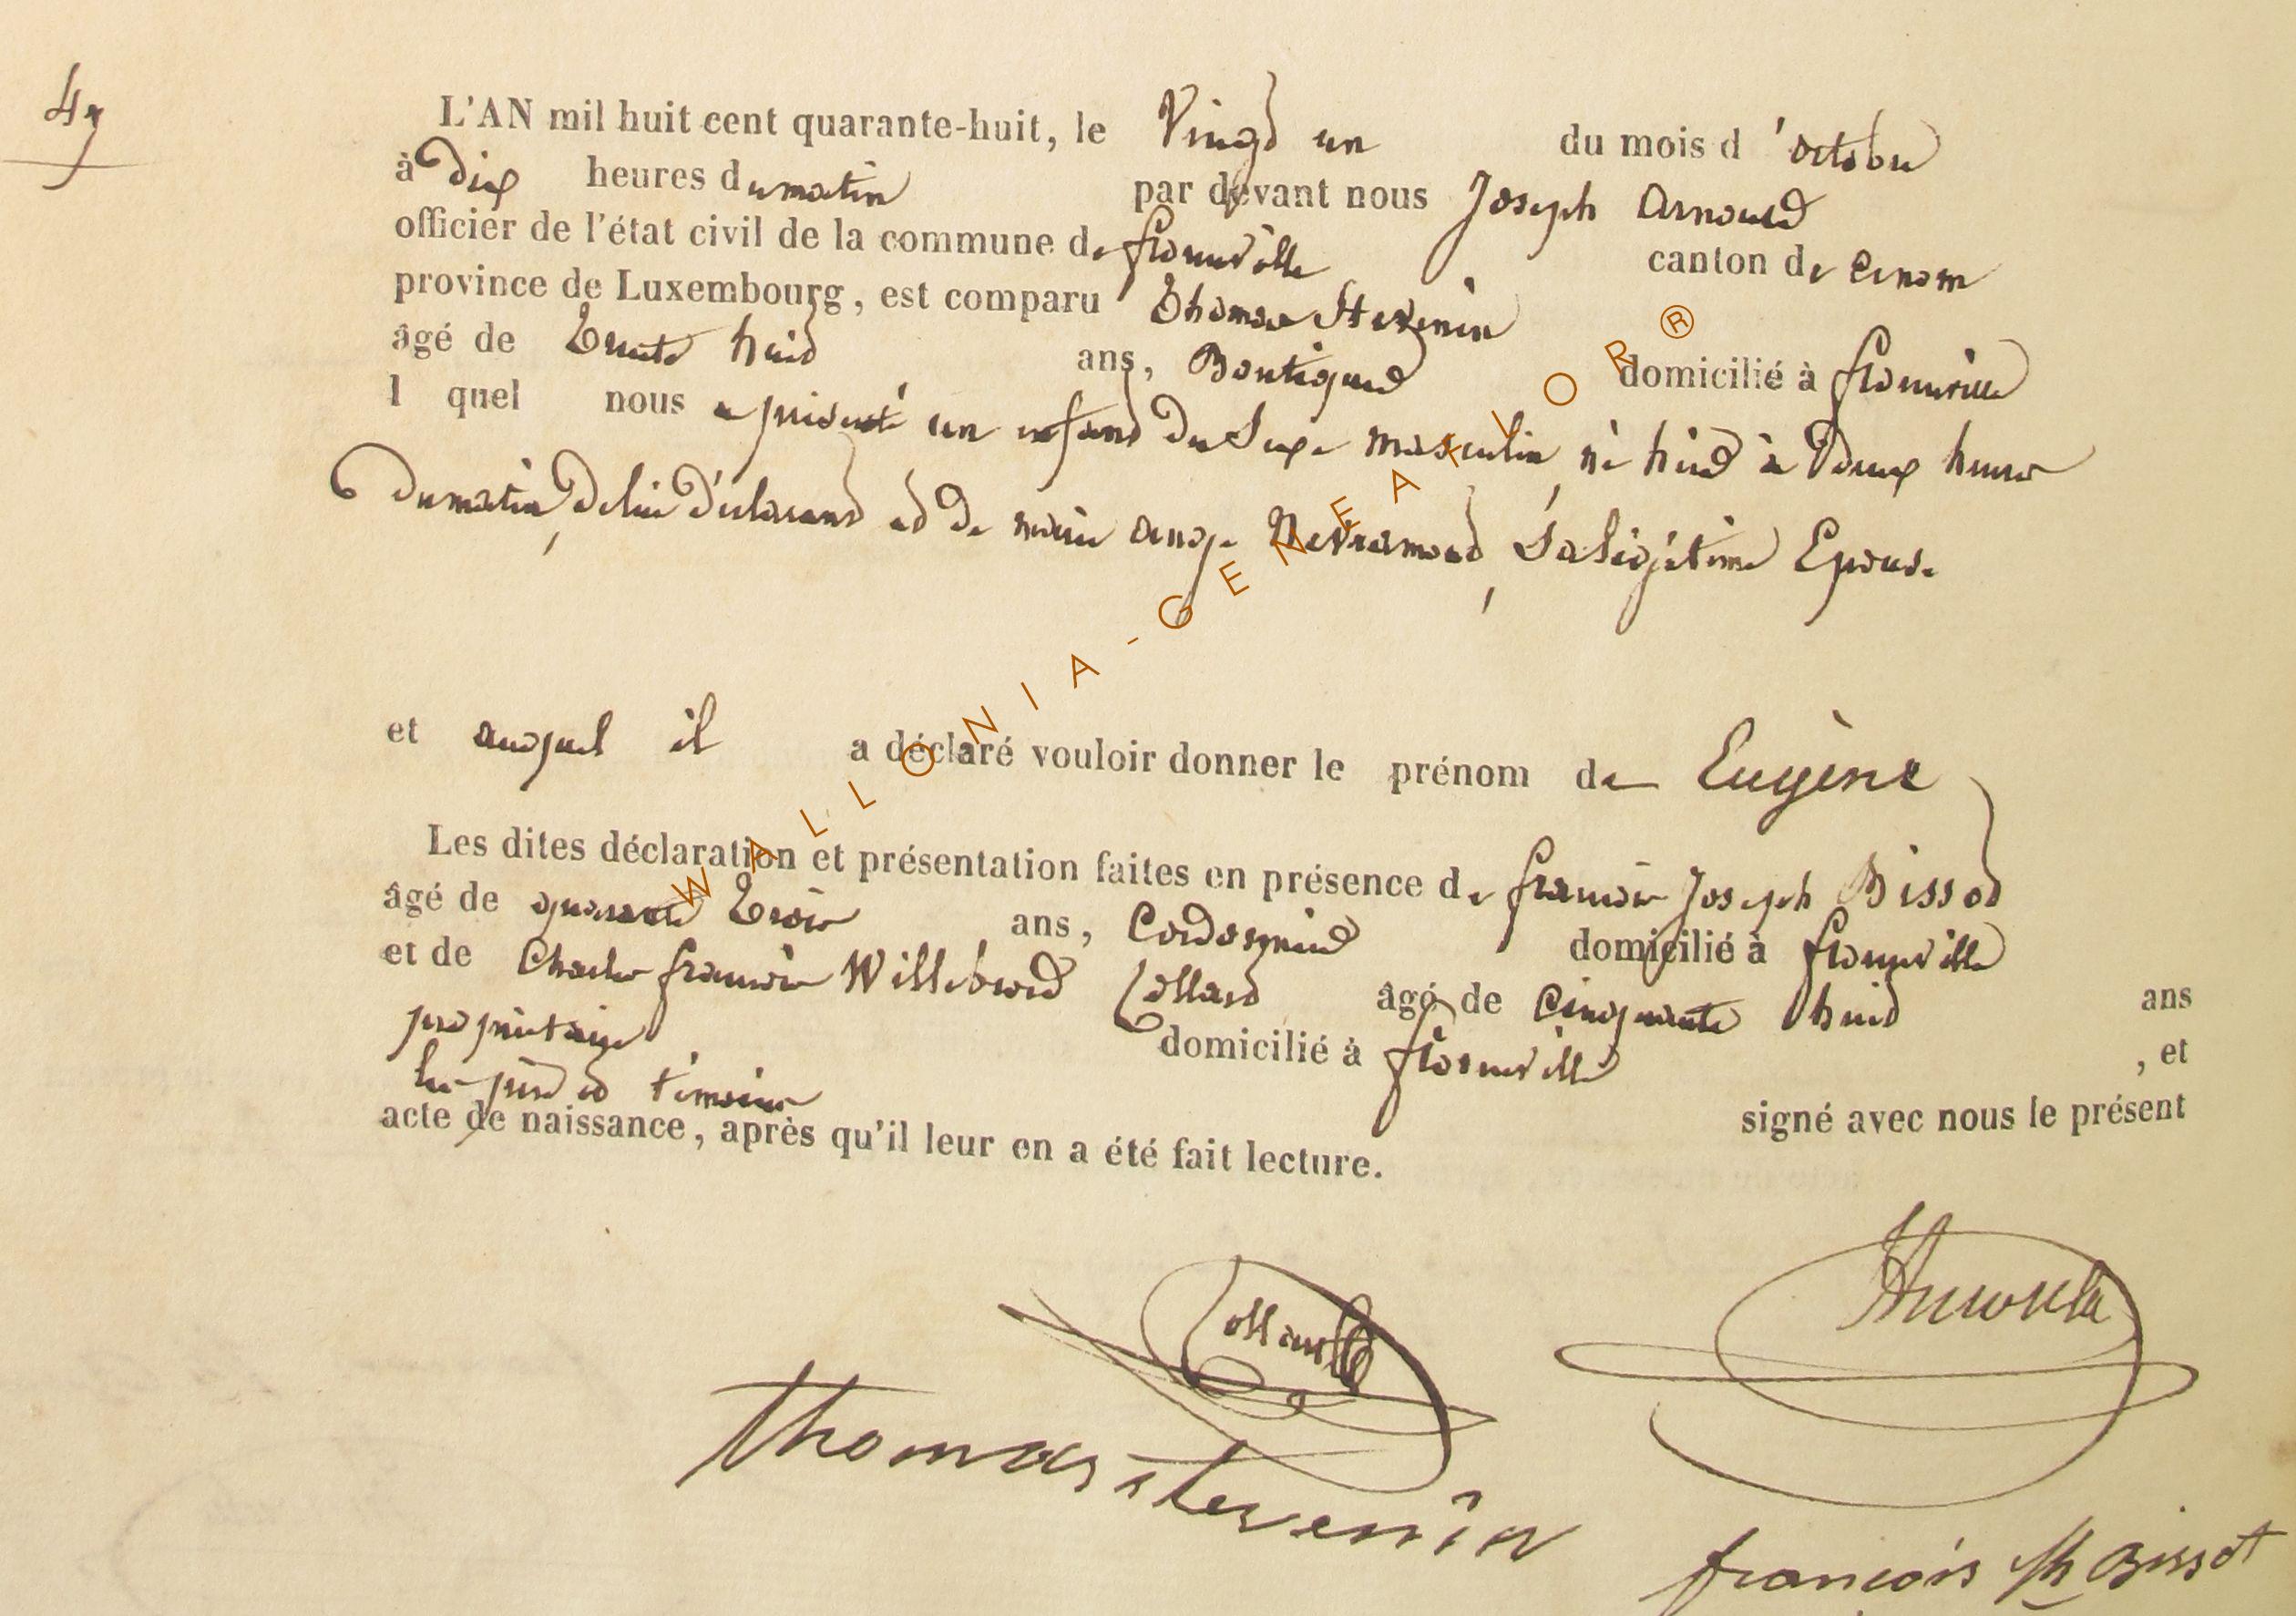 47
L'AN mil huit cent quarante-huit, le Vingt un du mois d'octobre
à Dix heures du matin par devant nous Joseph Arnould
officier de l'état civil de la commune de florenville canton de
province de Luxembourg, est comparu Thomas Stevenin
âgé de trente huit ans, Boutiquier domicilié à florenville
l quel nous a présenté un enfant du Sexe masculin, né hier à Douze heures
Du matin, De lui Déclarant et De marie ange Devramont, Sa légitime Epouse
et auquel il a déclaré vouloir donner le prénom de Eugène
Les dites déclaration et présentation faites en présence de françois Joseph Bissot
âgé de quarante trois ans, Cordonnier domicilié à florenville
et de Charles françois Willebrord Collard âgé de Cinquante huit ans
propriétaire domicilié à florenville , et
les père et témoins signé avec nous le présent
acte de naissance, après qu'il leur en a été fait lecture.
Collard
Arnould
thomas stevenin
françois Jh Bissot
WALLONIA-GENEALOR®